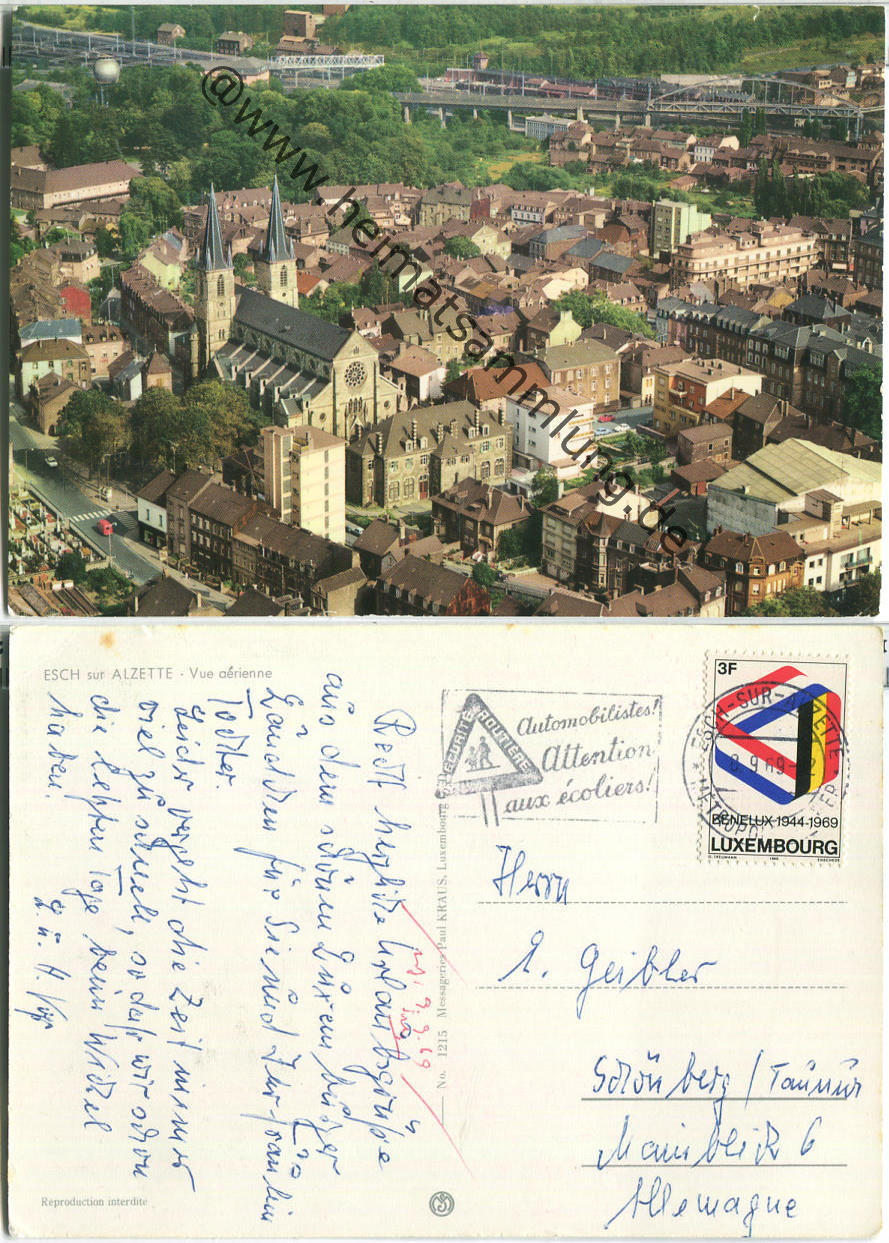 @www.heimatsammlung.de
ESCH sur ALZETTE - Vue aérienne
Recht herzliche Urlaubsgrüße
aus dem schönen Luxemburger
Ländchen für Sie und Ihr Fräulein
Tochter.
Leider vergeht die Zeit immer
viel zu schnell, so daß wir schon
die letzten Tage beim Wickel
haben.
No. 1215 Messageries Paul KRAUS, Luxembourg
9.9.69
Reproduction interdite
SÉCURITÉ ROUTIÈRE
Automobilistes!
Attention
aux écoliers!
ESCH-SUR-ALZETTE
8 9 69
3F
BENELUX 1944-1969
LUXEMBOURG
Herrn
L. Geibler
Schönberg/Taunus
Mainblick 6
Allemagne